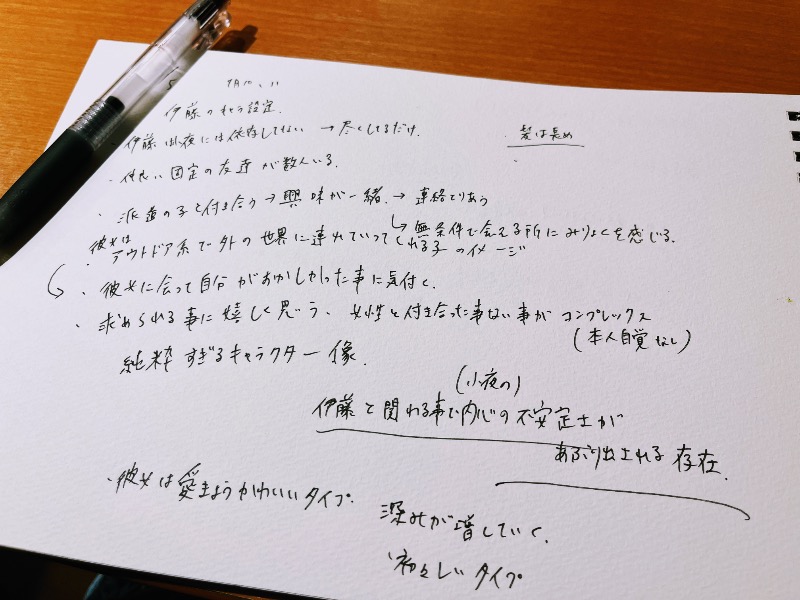 伊藤のキャラ設定.
伊藤は小夜には依存してない → 尽くしてるだけ.
髪は長め
・仲良い固定の友達が数人いる.
・派遣の子と付き合う → 興味が一緒. → 連絡とりあう
↳ 無条件で会える所にみりょくを感じる.
彼女は
アウトドア系で外の世界に連れていってくれる子のイメージ
・彼女に会って自分がおかしかった事に気付く.
・求められる事に嬉しく思う、女性と付き合った事ない事がコンプレックス
(本人自覚なし)
純粋すぎるキャラクター像.
(小夜の)
伊藤と関わる事で内心の不安定さが
あぶり出される存在.
・彼女は愛きょうかわいいタイプ.
深みが増していく.
初々しいタイプ